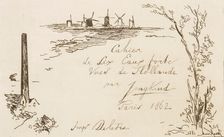 Cahier
de Six Eaux forte
Vues de Hollande
par Jongkind
Paris 1862
Imp. Delâtre